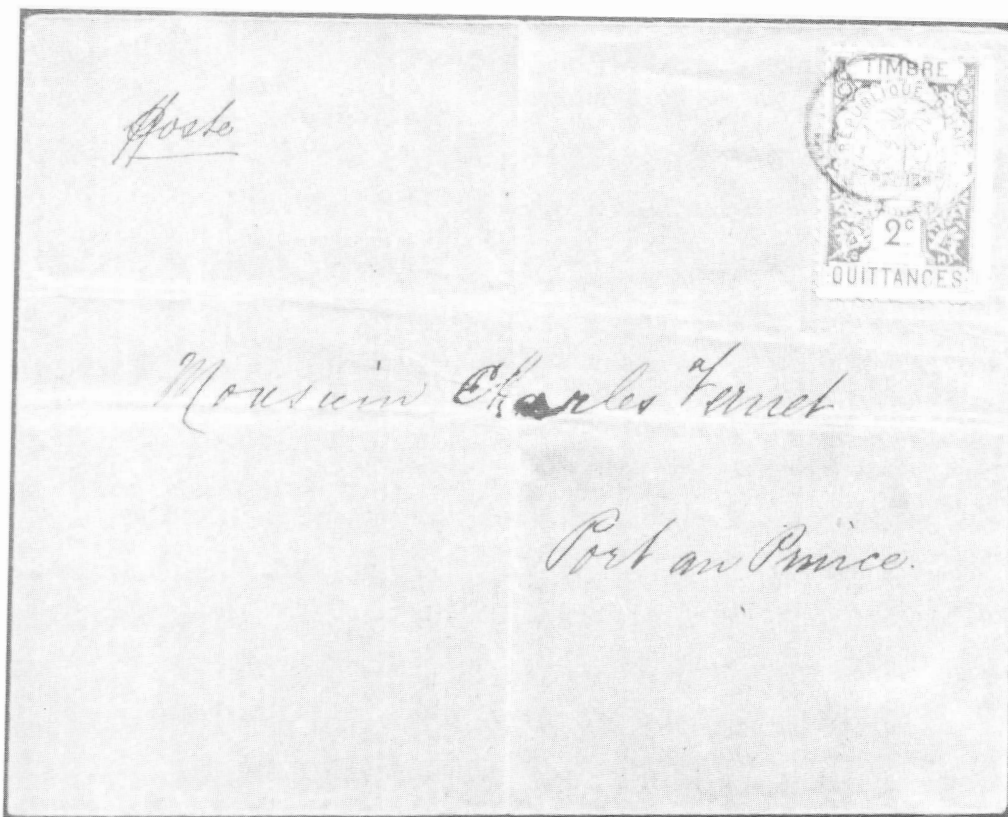 Poste
TIMBRE
REPUBLIQUE
2c
QUITTANCES
Monsieur Charles Vernet
Port au Prince.